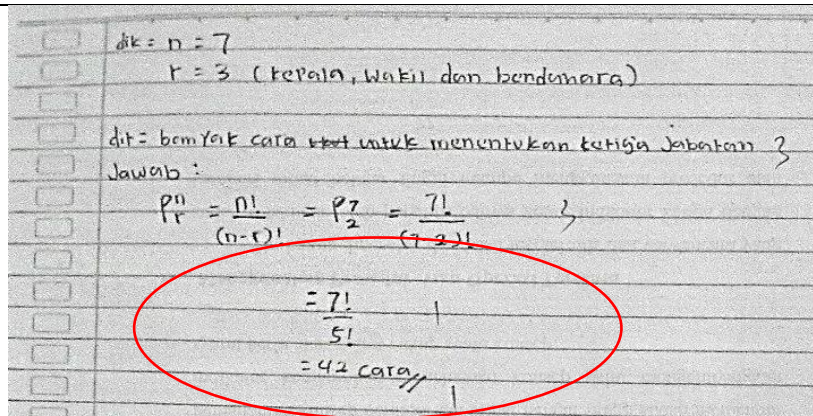 dik = n = 7
r = 3 (kepala, wakil dan bendahara)
dit = banyak cara untuk menentukan ketiga jabatan 3
Jawab :
P^n_r = n!/(n-r)! = P^7_2 = 7!/(7-2)! 3
= 7!/5! 1
= 42 cara// 1